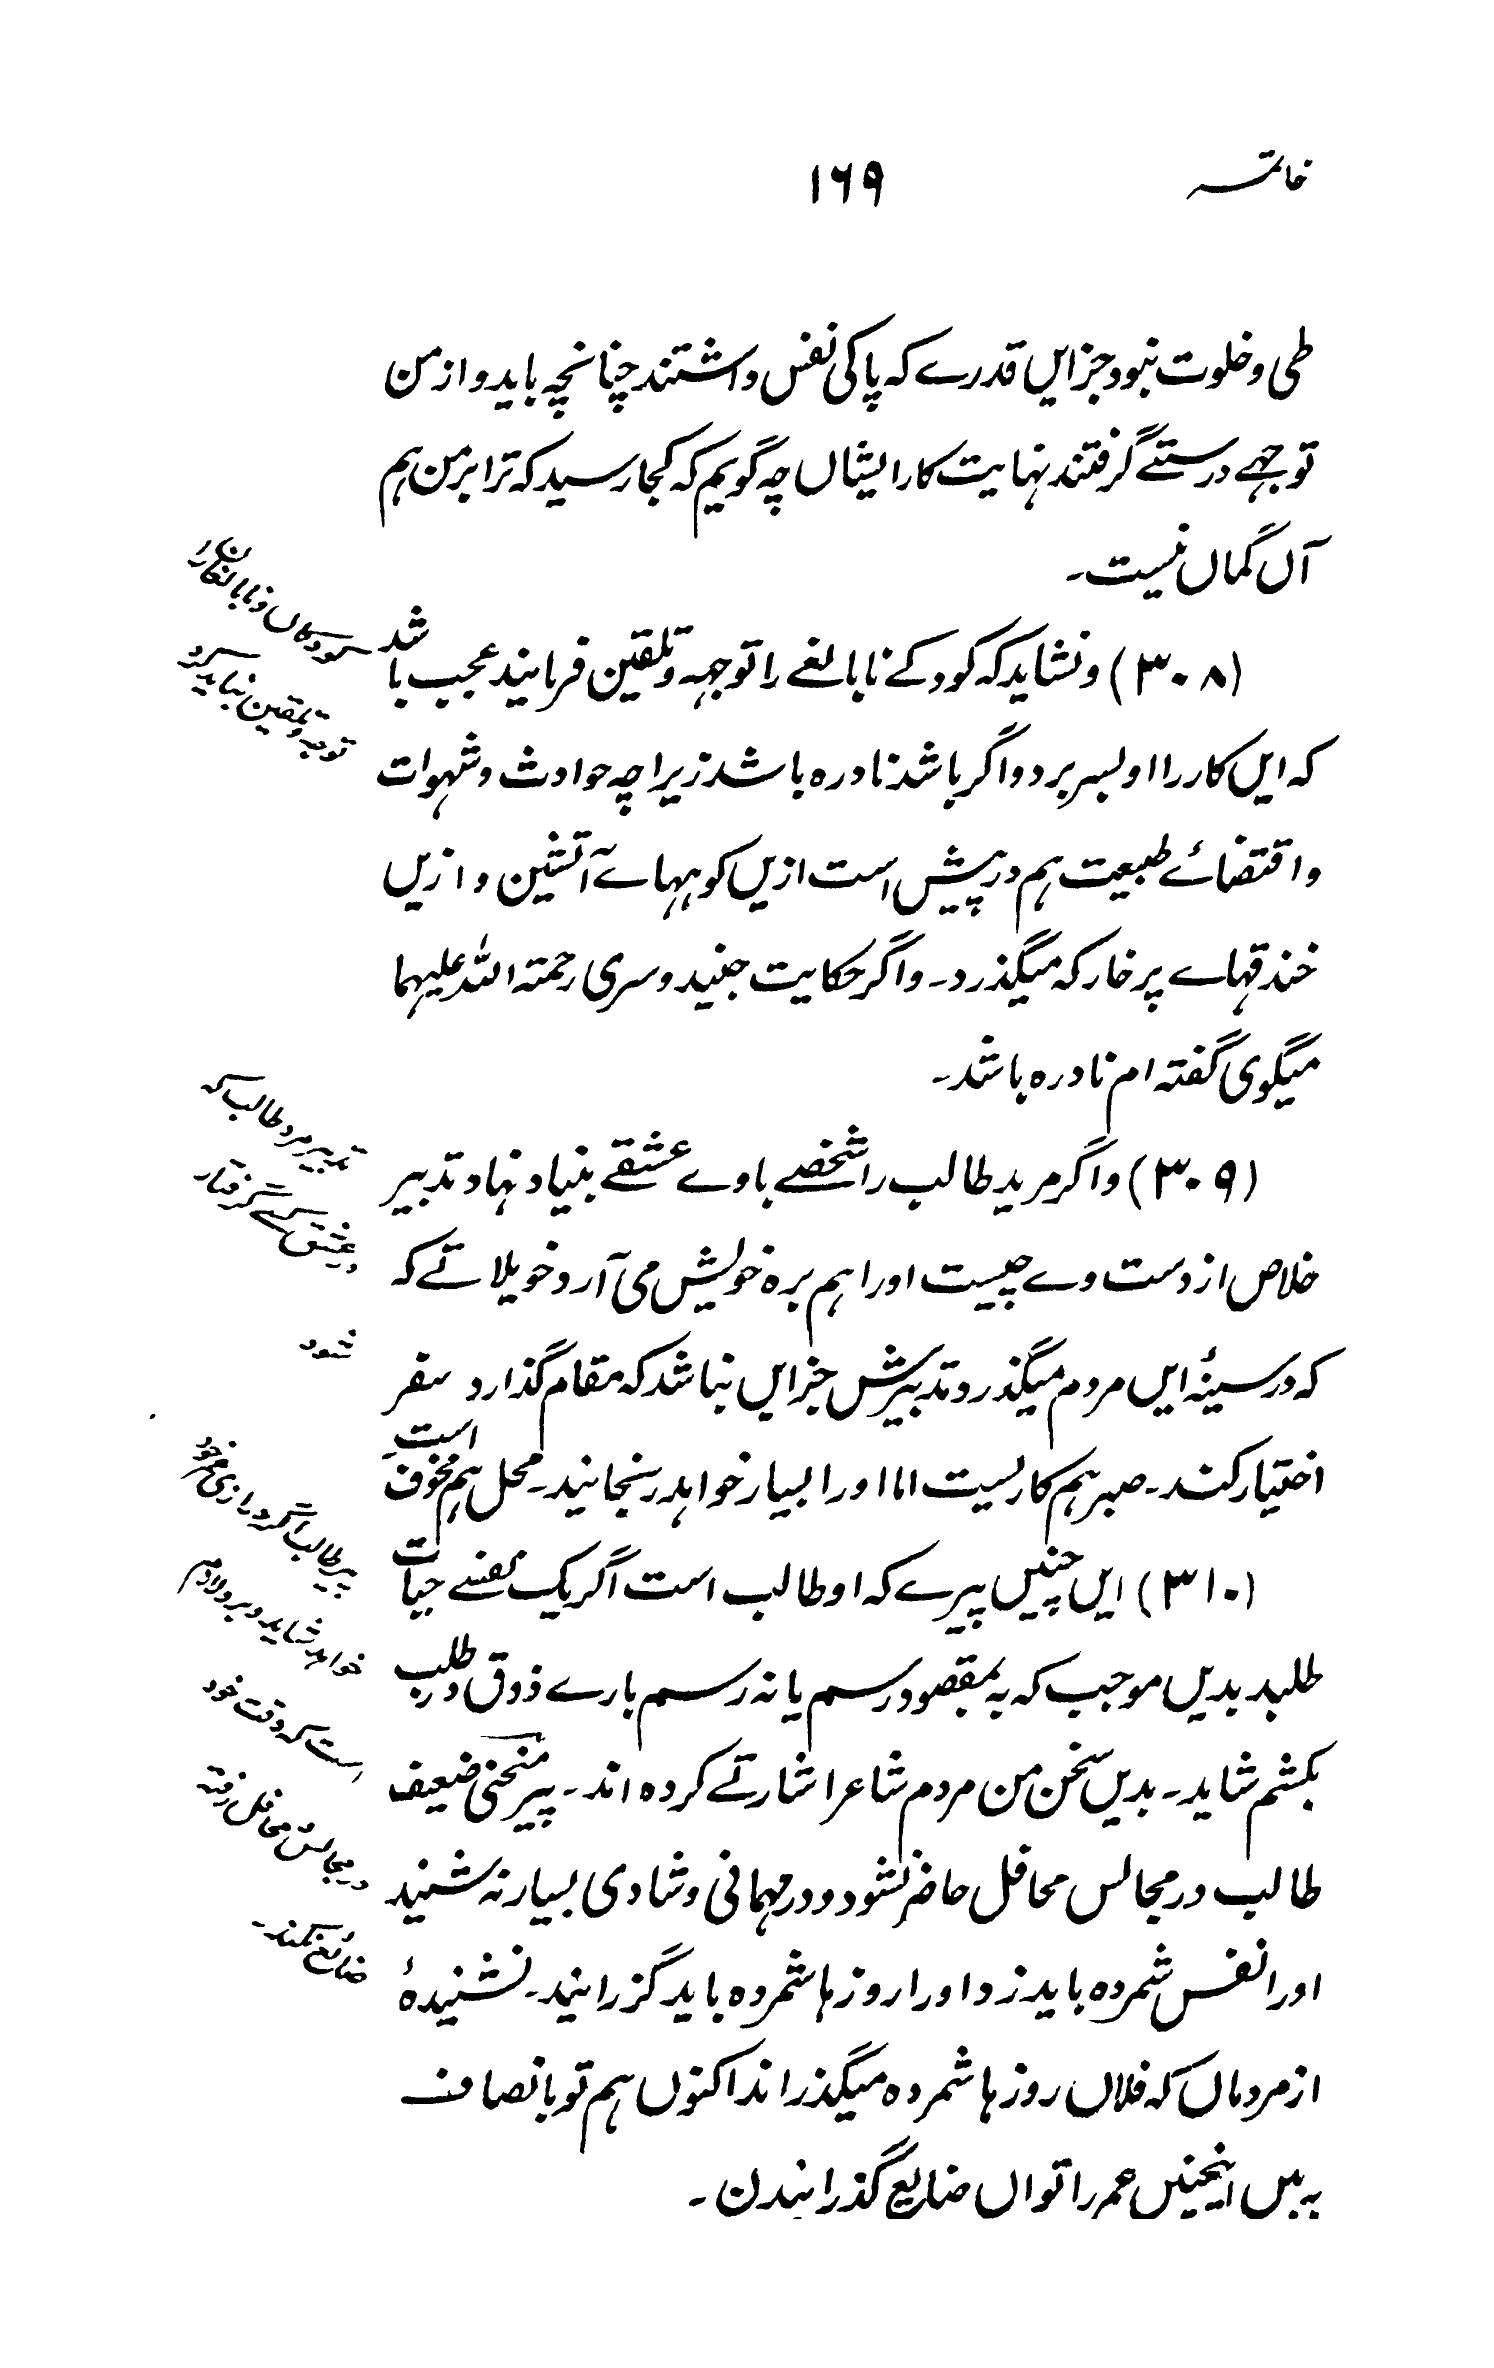 خاتمہ
۱۶۹
طی و خلوت نبود جز ایں قدرے کہ پاکی نفس داشتند چنانچہ باید و از من
توجہے درستے گرفتند نہایت کار ایشاں چہ گویم کہ کجا رسید کہ ترا بر من ہم
آں گماں نیست۔
(۳۰۸) و نشاید کہ کودکے نابالغے را توجہ و تلقین فرمایند عجیب باشد
کہ ایں کار را او بسر برد و اگر باشد نادرہ باشد زیرا چہ حوادث و شہوات
و اقتضائے طبیعت ہم در پیش است ازیں کوہہاے آتشین و ازیں
خندقہاے پر خار کہ میگذرد۔ و اگر حکایت جنید و سری رحمتہ اللہ علیہما
میگوی گفتہ ام نادرہ باشد۔
(۳۰۹) و اگر مرید طالب را شخصے باوے عشقے بنیاد نہاد تدبیر
خلاص از دست وے چیست او را ہم برہ خویش می آرد خویلاتے کہ
کہ در سینۂ ایں مردم میگذرد تدبیرش جز ایں نباشد کہ مقام گذارد سفر
اختیار کند۔ صبر ہم کاریست اما او را بسیار خواہد رنجانید۔ محل ہم مخوف است
(۳۱۰) ایں چنیں پیرے کہ او طالب است اگر یک نفسے حیات
طلبد بدیں موجب کہ بہ مقصود رسم یا نہ رسم بارے ذوق و درد طلب
بکشم شاید۔ بدیں سخن من مردم شاعر اشارتے کردہ اند۔ پیر منحنی ضعیف
طالب در مجالس محافل حاضر نشود و در مہمانی و شادی بسیار نہ شنید
او را نفس شمردہ باید زد او را روزہا شمردہ باید گزرانید۔ نشنیدۂ
از مردماں کہ فلاں روزہا شمردہ میگذراند اکنوں ہم تو بانصاف
بہ بیں اینچنیں عمر را تواں ضایع گذرانیدن۔
کودکاں و نابالغان را
توجہ و تلقین نباید کرد
تدبیر مرد طالب کہ
در عشق کسے گرفتار
شود
پیر طالب اگر درازی عمر خود
خواہد شاید و برو لازم
است کہ وقت خود
در مجالس و محافل رفتہ
ضائع نکند۔